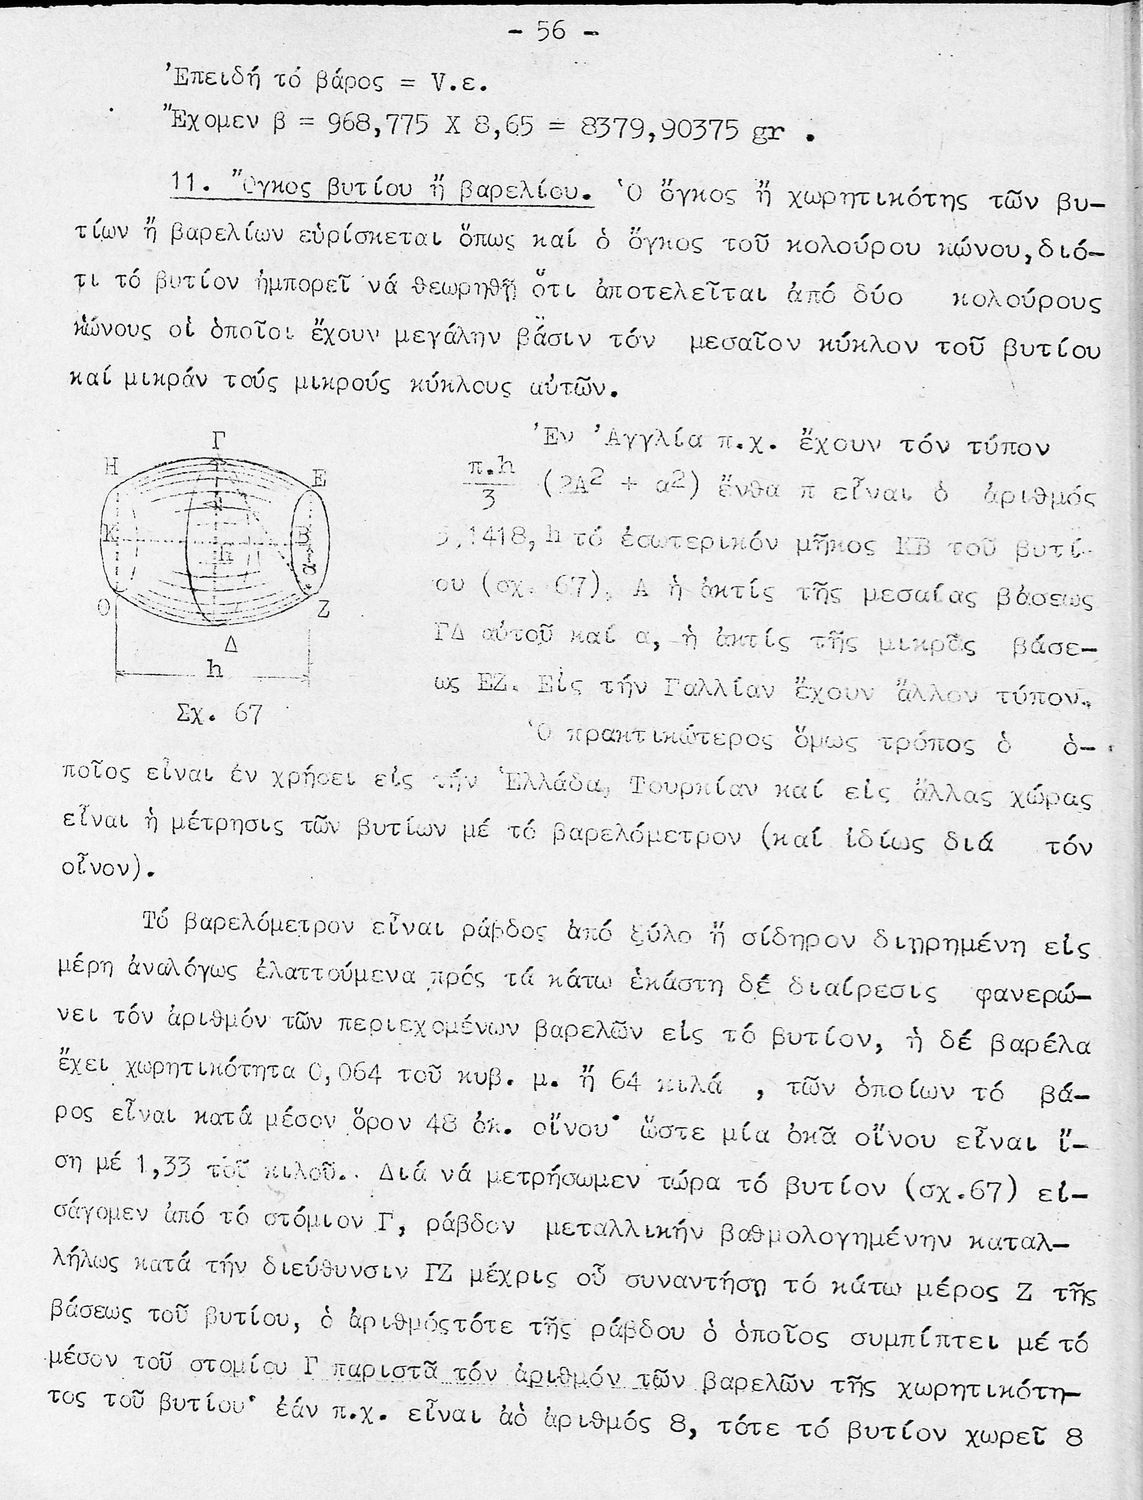 - 56 -
Ἐπειδή τό βάρος = V.ε.
Ἔχομεν β = 968,775 X 8,65 = 8379,90375 gr .
11. Ὄγκος βυτίου ἤ βαρελίου. Ὁ ὄγκος ἤ χωρητικότης τῶν βυ-
τίων ἤ βαρελίων εὑρίσκεται ὅπως καί ὁ ὄγκος τοῦ κολούρου κώνου,διό-
τι τό βυτίον ἡμπορεῖ νά θεωρηθῇ ὅτι ἀποτελεῖται ἀπό δύο κολούρους
κώνους οἱ ὁποῖοι ἔχουν μεγάλην βάσιν τόν μεσαῖον κύκλον τοῦ βυτίου
καί μικράν τούς μικρούς κύκλους αὐτῶν.
Ἐν Ἀγγλία π.χ. ἔχουν τόν τύπον
π.h
3
(2Α2 + α2) ἔνθα π εἶναι ὁ ἀριθμός
3,1418, h τό ἐσωτερικόν μῆκος ΚΒ τοῦ βυτί-
ου (σχ. 67), Α ἡ ἀκτίς τῆς μεσαίας βάσεως
ΓΔ αὐτοῦ καί α, ἡ ἀκτίς τῆς μικρᾶς βάσε-
ως ΕΖ. Εἰς τήν Γαλλίαν ἔχουν ἄλλον τύπον.
Γ
Η
Ε
Κ
Β
h
α
Ο
Ζ
Δ
h
Σχ. 67
Ὁ πρακτικώτερος ὅμως τρόπος ὁ ὁ-
ποῖος εἶναι ἐν χρήσει εἰς τήν Ἑλλάδα, Τουρκίαν καί εἰς ἄλλας χώρας
εἶναι ἡ μέτρησις τῶν βυτίων μέ τό βαρελόμετρον (καί ἰδίως διά τόν
οἶνον).
Τό βαρελόμετρον εἶναι ράβδος ἀπό ξύλο ἤ σίδηρον διῃρημένη εἰς
μέρη ἀναλόγως ἐλαττούμενα πρός τά κάτω ἑκάστη δέ διαίρεσις φανερώ-
νει τόν ἀριθμόν τῶν περιεχομένων βαρελῶν εἰς τό βυτίον, ἡ δέ βαρέλα
ἔχει χωρητικότητα 0,064 τοῦ κυβ. μ. ἤ 64 κιλά , τῶν ὁποίων τό βά-
ρος εἶναι κατά μέσον ὅρον 48 ὀκ. οἴνου· ὥστε μία ὀκᾶ οἴνου εἶναι ἴ-
ση μέ 1,33 τοῦ κιλοῦ.. Διά νά μετρήσωμεν τώρα τό βυτίον (σχ.67) εἰ-
σάγομεν ἀπό τό στόμιον Γ, ράβδον μεταλλικήν βαθμολογημένην καταλ-
λήλως κατά τήν διεύθυνσιν ΓΖ μέχρις οὗ συναντήσῃ τό κάτω μέρος Ζ τῆς
βάσεως τοῦ βυτίου, ὁ ἀριθμόςτότε τῆς ράβδου ὁ ὁποῖος συμπίπτει μέ τό
μέσον τοῦ στομίου Γ παριστᾶ τόν ἀριθμόν τῶν βαρελῶν τῆς χωρητικότη-
τος τοῦ βυτίου· ἐάν π.χ. εἶναι ἀὁ ἀριθμός 8, τότε τό βυτίον χωρεῖ 8